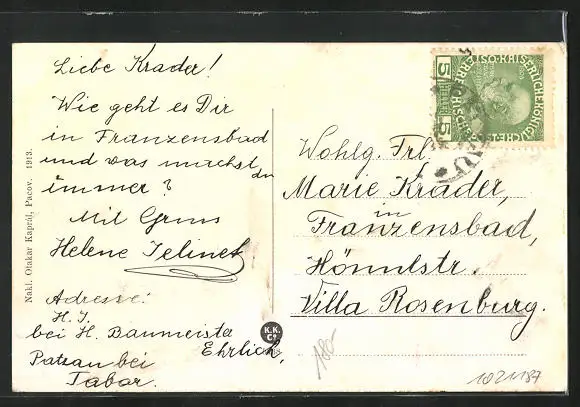 Liebe Krader!
Wie geht es Dir
in Franzensbad
und was machst du
immer?
Mit Gruss
Helene Jelinek
Adresse:
H. J.
bei H. Baumeister
Ehrlich,
Patzau bei
Tabor.
Nakl. Otakar Kaprál, Pacov. 1913.
K.K.
C°
5 HELLER 5
KAISERLICHE KÖNIGLICHE ÖSTERREICHISCHE
Wohlg. Frl.
Marie Krader,
in
Franzensbad,
Villa Rosenburg.
180-
1021187